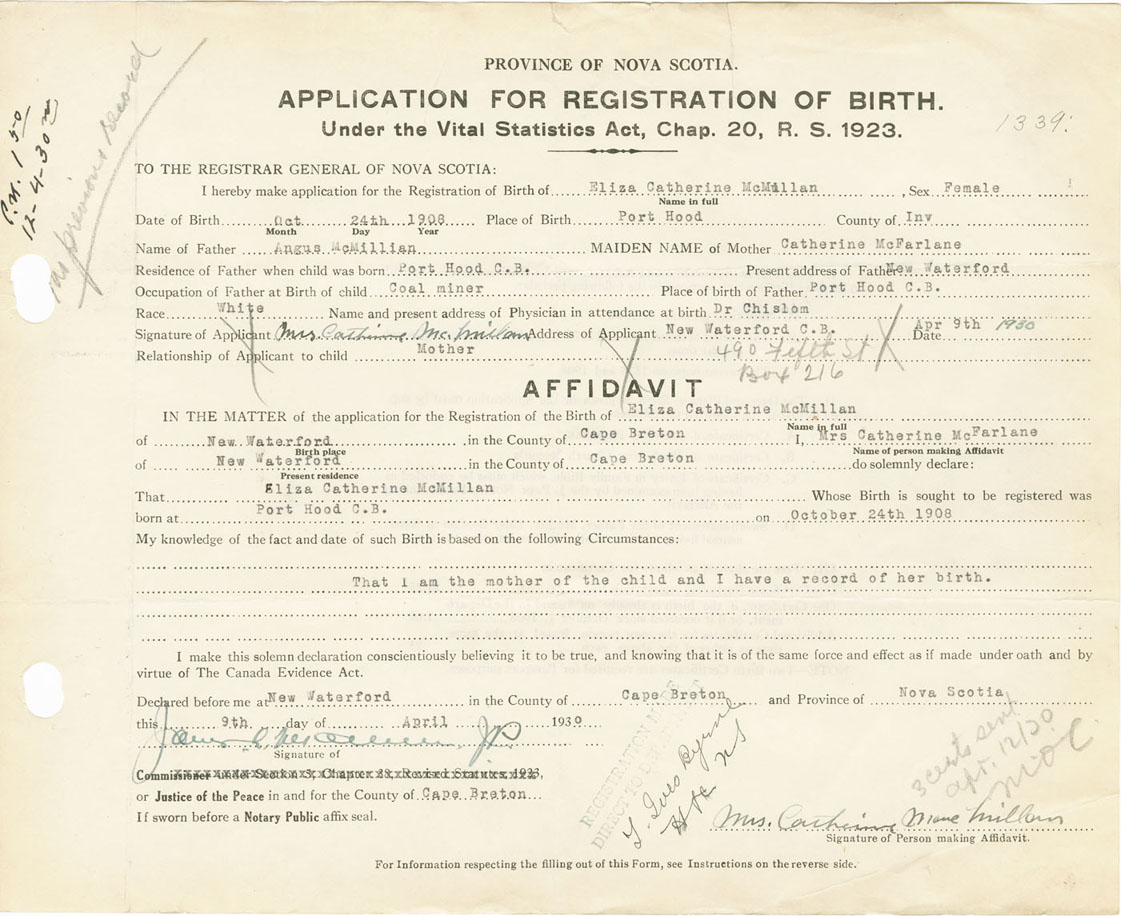 PROVINCE OF NOVA SCOTIA.
APPLICATION FOR REGISTRATION OF BIRTH.
Under the Vital Statistics Act, Chap. 20, R. S. 1923.
1339.
P.N. 1 50
12-4-30
no previous record
TO THE REGISTRAR GENERAL OF NOVA SCOTIA:
I hereby make application for the Registration of Birth of Eliza Catherine McMillan, Sex Female
Name in full
Date of Birth Oct 24th 1908 Place of Birth Port Hood County of Inv
Month Day Year
Name of Father Angus McMillian MAIDEN NAME of Mother Catherine McFarlane
Residence of Father when child was born Port Hood C.B. Present address of Father New Waterford
Occupation of Father at Birth of child Coal miner Place of birth of Father Port Hood C.B.
Race White Name and present address of Physician in attendance at birth Dr Chislom
Signature of Applicant Mrs. Catherine McMillan Address of Applicant New Waterford C.B. Date Apr 9th 1930
Relationship of Applicant to child Mother 490 Fifth St
Box 216
AFFIDAVIT
IN THE MATTER of the application for the Registration of the Birth of Eliza Catherine McMillan
Name in full
of New Waterford in the County of Cape Breton I, Mrs Catherine McFarlane
Birth place Name of person making Affidavit
of New Waterford in the County of Cape Breton do solemnly declare:
Present residence
That Eliza Catherine McMillan Whose Birth is sought to be registered was
born at Port Hood C.B. on October 24th 1908
My knowledge of the fact and date of such Birth is based on the following Circumstances:
That i am the mother of the child and I have a record of her birth.
I make this solemn declaration conscientiously believing it to be true, and knowing that it is of the same force and effect as if made under oath and by
virtue of The Canada Evidence Act.
Declared before me at New Waterford in the County of Cape Breton and Province of Nova Scotia
this 9th day of April 1930
J.P.
Signature of
Commissioner under Section 3, Chapter 28, Revised Statutes, 1923,
or Justice of the Peace in and for the County of Cape Breton
If sworn before a Notary Public affix seal.
REGISTRATION MADE
DIRECT TO
3 cents sent
apr. 12/30
Mrs. Catherine MacMillan
Signature of Person making Affidavit.
For Information respecting the filling out of this Form, see Instructions on the reverse side.